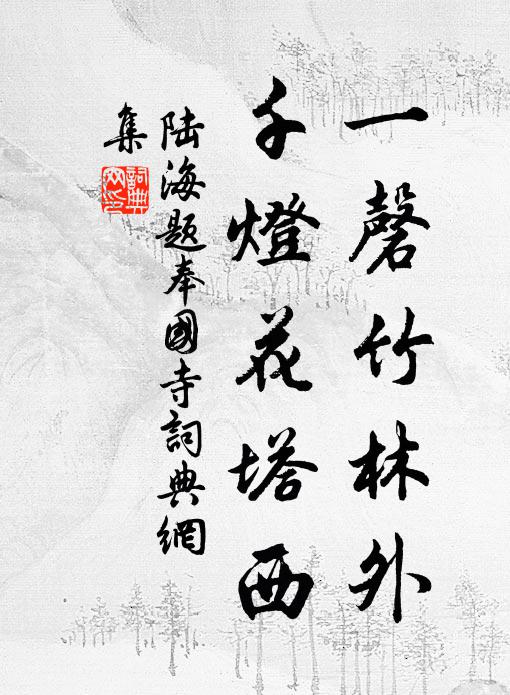 一磬竹林外
千燈花塔西
陆海题奉國寺詞典網
集
詞典網印